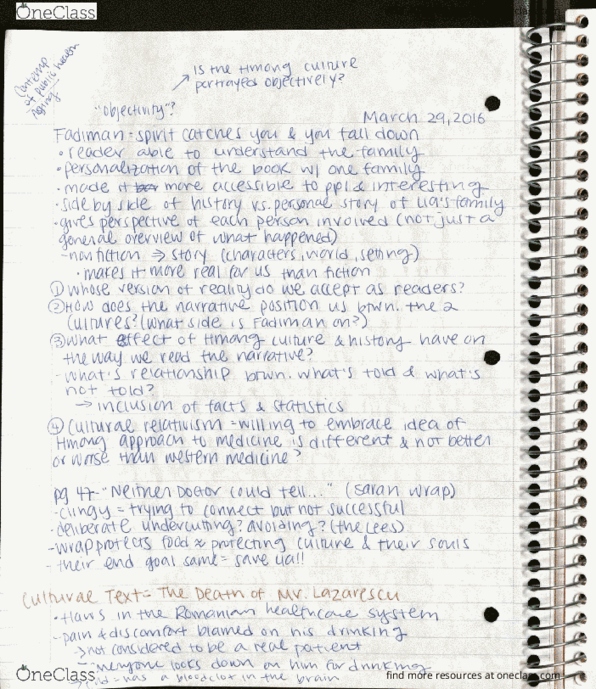 OneClass
contemp
of public health
Is the Hmong culture
portrayed objectively?
"objectivity"?
March 29, 2016
Fadiman = spirit catches you & you fall down
• reader able to understand the family
• personalization of the book w/ one family
• made it more accessible to ppl & interesting
• side by side of history vs. personal story of Lia's family
• gives perspective of each person involved (not just a
general overview of what happened)
- nonfiction → story (characters, world, setting)
• makes it more real for us than fiction
① whose version of reality do we accept as readers?
② How does the narrative position us btwn. the 2
cultures? (what side is Fadiman on?)
③ what effect of Hmong culture & history have on
the way we read the narrative?
- what's relationship btwn. what's told & what's
not told?
→ inclusion of facts & statistics
④ cultural relativism = willing to embrace idea of
Hmong approach to medicine is different & not better
or worse than western medicine?
pg 47 - "Neither Doctor could tell..." (saran wrap)
- clingy = trying to connect but not successful
- deliberate undercutting? avoiding? (the Lees)
- wrap protects food ≈ protecting culture & their souls
- their end goal same = save Lia!!
Cultural Text = The Death of Mr. Lazarescu
• flaws in the Romanian healthcare system
- pain & discomfort blamed on his drinking
→ not considered to be a real patient
- everyone looks down on him for drinking
has a blood clot in the brain
OneClass
find more resources at oneclass.com